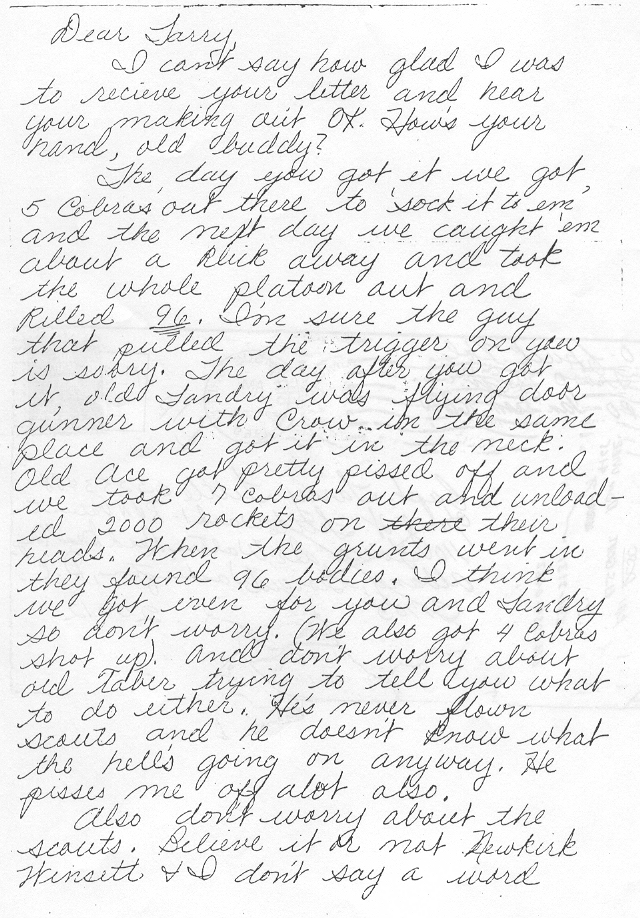 Dear Larry,
I can't say how glad I was
to recieve your letter and hear
your making out OK. Hows your
hand, old buddy?
The day you got it we got
5 Cobras out there to 'sock it to em'
and the next day we caught 'em
about a klick away and took
the whole platoon out and
killed 96. I'm sure the guy
that pulled the trigger on you
is sorry. The day after you got
it, old Landry was flying door
gunner with Crow in the same
place and got it in the neck.
Old Ace got pretty pissed off and
we took 7 cobras out and unload-
ed 2000 rockets on there their
heads. When the grunts went in
they found 96 bodies. I think
we got even for you and Landry
so don't worry. (We also got 4 Cobras
shot up). And don't worry about
old Taber trying to tell you what
to do either. He's never flown
scouts and he doesn't know what
the hell's going on anyway. He
pisses me off alot also.
Also don't worry about the
scouts. Believe it or not Newkirk
Winsett & I don't say a word